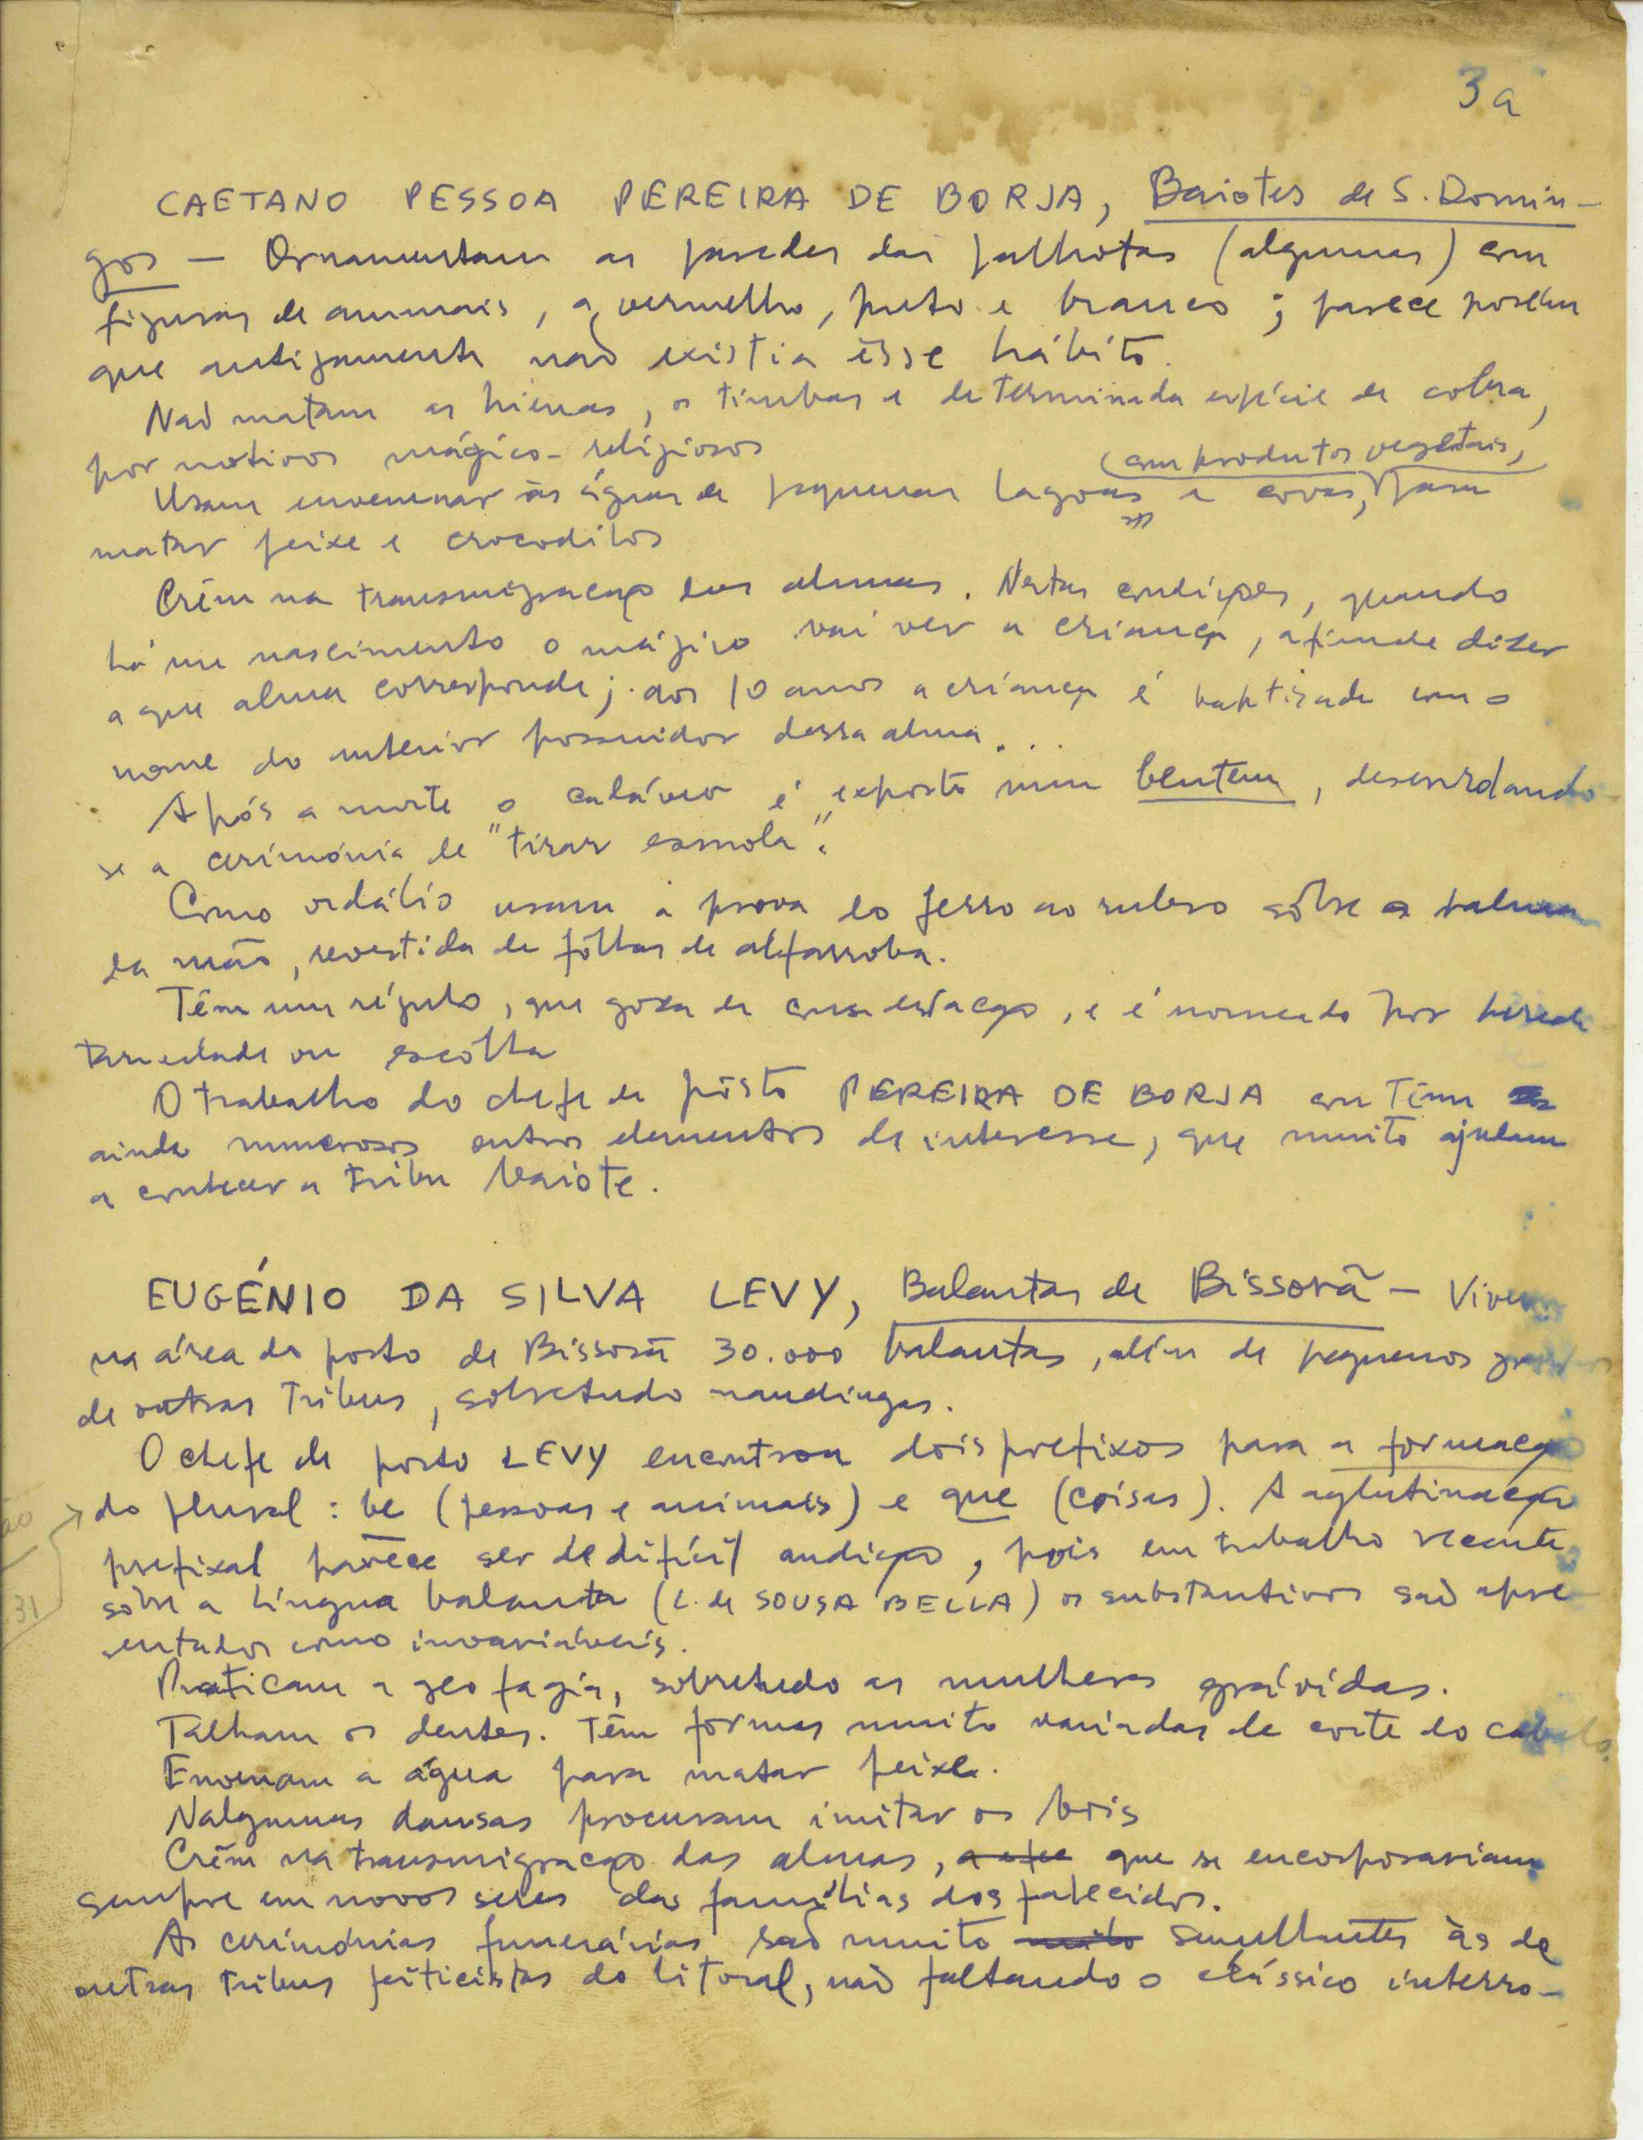 3a
CAETANO PESSOA PEREIRA DE BORJA, Baiotes de S. Domin-
gos — Ornamentam as paredes das palhotas (algumas) com
figuras de animais, a vermelho, preto e branco; parece porém
que antigamente não existia êsse hábito.
Não matam as hienas, os timbas e determinada espécie de cobra,
por motivos mágico-religiosos
(com produtos vegetais,
Usam envenenar as águas de pequenas lagoas e covas, para
matar peixe e crocodilos
Crêm na transmigração das almas. Nestas condições, quando
há um nascimento o mágico vai ver a criança, afim de dizer
a que alma corresponde; aos 10 anos a criança é baptisada com o
nome do anterior possuidor dessa alma...
Após a morte o cadáver é exposto num bentem, desenrolando-
se a cerimónia de "tirar esmola".
Como ordálio usam a prova do ferro ao rubro sôbre a palma
da mão, revestida de fôlhas de alfarroba.
Têm um régulo, que goza de consideração, e é nomeado por heredi
tariedade ou escolha
O trabalho do chefe de pôsto PEREIRA DE BORJA contém
ainda numerosos outros elementos de interesse, que muito ajudam
a conhecer a tribu baiote.
EUGÉNIO DA SILVA LEVY, Balantas de Bissorã — Vivem
na área do posto de Bissorã 30.000 balantas, além de pequenos grupos
de outras tribus, sobretudo mandingas.
O chefe de posto LEVY encontrou dois prefixos para a formação
do plural: be (pessoas e animais) e que (coisas). A aglutinação
prefixal parece ser de difícil audição, pois em trabalho recente
sôbre a língua balanta (L. de SOUSA BELLA) os substantivos são apre-
sentados como invariáveis.
31
Praticam a geofagia, sobretudo as mulheres grávidas.
Talham os dentes. Têm formas muito variadas de corte do cabelo.
Envenenam a água para matar peixe.
Nalgumas dansas procuram imitar os bois
Crêm na transmigração das almas, que se encorporariam
sempre em novos seres das famílias dos falecidos.
As cerimónias funerárias são muito muito semelhantes às de
outras tribus feiticistas do litoral, não faltando o clássico interro-